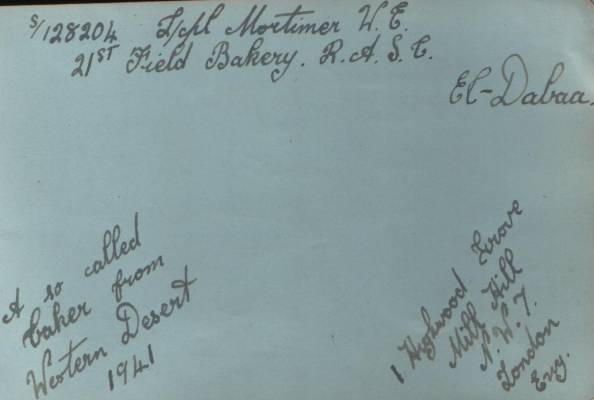 S/128204 L/Cpl Mortimer W.E.
21ST Field Bakery. R.A.S.C.
El-Dabaa.
A so called
baker from
Western Desert
1941
1 Highwood Grove
Mill Hill
N.W.7.
London
Eng.